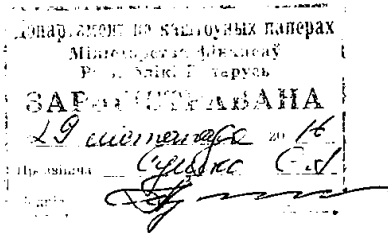 Дэпартамент па каштоўных паперах
Міністэрства фінансаў
Рэспублікі Беларусь
ЗАРЭГІСТРАВАНА
29 лістапада 20 16
Прозвішча